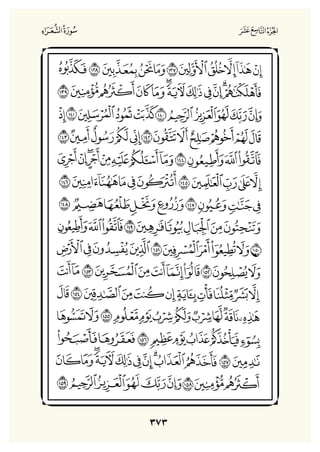 الجُزْءُ التَّاسِعَ عَشَرَ
سُورَةُ الشُّعَرَاءِ
إِنْ هَٰذَآ إِلَّا خُلُقُ ٱلْأَوَّلِينَ ١٣٧ وَمَا نَحْنُ بِمُعَذَّبِينَ ١٣٨ فَكَذَّبُوهُ
فَأَهْلَكْنَٰهُمْۗ إِنَّ فِى ذَٰلِكَ لَءَايَةًۖ وَمَا كَانَ أَكْثَرُهُم مُّؤْمِنِينَ ١٣٩
وَإِنَّ رَبَّكَ لَهُوَ ٱلْعَزِيزُ ٱلرَّحِيمُ ١٤٠ كَذَّبَتْ ثَمُودُ ٱلْمُرْسَلِينَ ١٤١ إِذْ
قَالَ لَهُمْ أَخُوهُمْ صَٰلِحٌ أَلَا تَتَّقُونَ ١٤٢ إِنِّى لَكُمْ رَسُولٌ أَمِينٌ ١٤٣
فَٱتَّقُوا۟ ٱللَّهَ وَأَطِيعُونِ ١٤٤ وَمَآ أَسْـَٔلُكُمْ عَلَيْهِ مِنْ أَجْرٍۖ إِنْ أَجْرِىَ
إِلَّا عَلَىٰ رَبِّ ٱلْعَٰلَمِينَ ١٤٥ أَتُتْرَكُونَ فِى مَا هَٰهُنَآ ءَامِنِينَ ١٤٦
فِى جَنَّٰتٍ وَعُيُونٍ ١٤٧ وَزُرُوعٍ وَنَخْلٍ طَلْعُهَا هَضِيمٌ ١٤٨
وَتَنْحِتُونَ مِنَ ٱلْجِبَالِ بُيُوتًا فَٰرِهِينَ ١٤٩ فَٱتَّقُوا۟ ٱللَّهَ وَأَطِيعُونِ
١٥٠ وَلَا تُطِيعُوٓا۟ أَمْرَ ٱلْمُسْرِفِينَ ١٥١ ٱلَّذِينَ يُفْسِدُونَ فِى ٱلْأَرْضِ
وَلَا يُصْلِحُونَ ١٥٢ قَالُوٓا۟ إِنَّمَآ أَنتَ مِنَ ٱلْمُسَحَّرِينَ ١٥٣ مَآ أَنتَ
إِلَّا بَشَرٌ مِّثْلُنَا فَأْتِ بِـَٔايَةٍ إِن كُنتَ مِنَ ٱلصَّٰدِقِينَ ١٥٤ قَالَ
هَٰذِهِۦ نَاقَةٌ لَّهَا شِرْبٌ وَلَكُمْ شِرْبُ يَوْمٍ مَّعْلُومٍ ١٥٥ وَلَا تَمَسُّوهَا
بِسُوٓءٍ فَيَأْخُذَكُمْ عَذَابُ يَوْمٍ عَظِيمٍ ١٥٦ فَعَقَرُوهَا فَأَصْبَحُوا۟
نَٰدِمِينَ ١٥٧ فَأَخَذَهُمُ ٱلْعَذَابُۗ إِنَّ فِى ذَٰلِكَ لَءَايَةًۖ وَمَا كَانَ
أَكْثَرُهُم مُّؤْمِنِينَ ١٥٨ وَإِنَّ رَبَّكَ لَهُوَ ٱلْعَزِيزُ ٱلرَّحِيمُ ١٥٩
٣٧٣